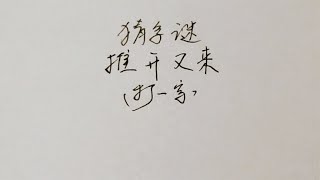 猜字谜
推开又来
(打一字)